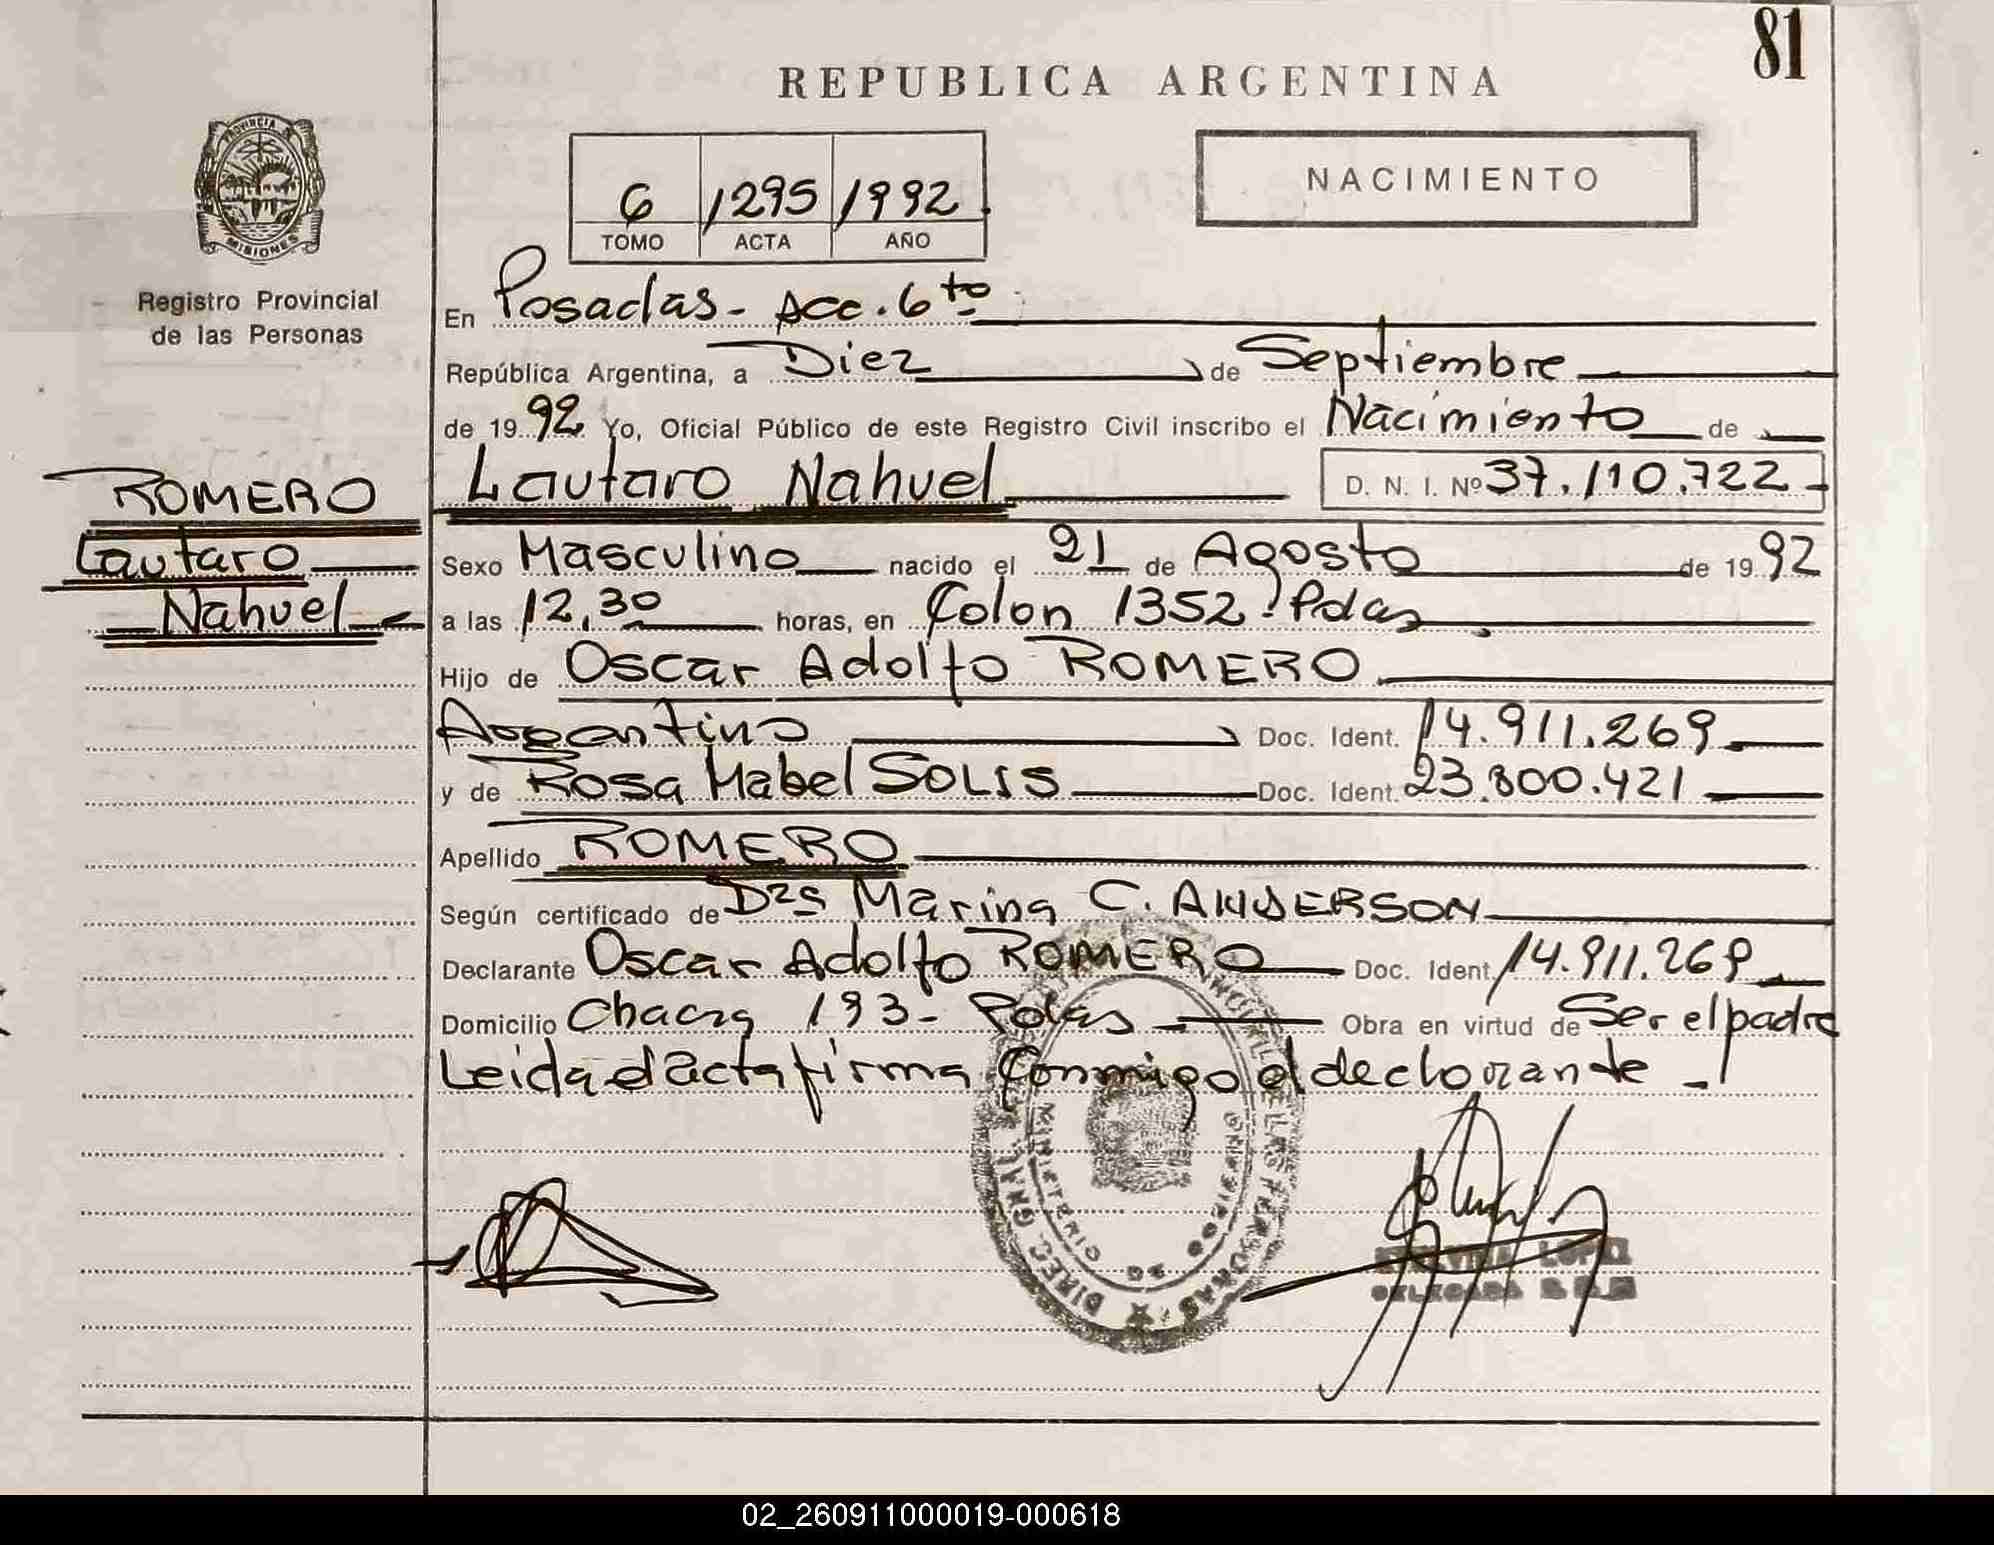 81
REPUBLICA ARGENTINA
PROVINCIA DE
MISIONES
Registro Provincial
de las Personas
6 1295 1992
TOMO ACTA AÑO
NACIMIENTO
En Posadas - Acc. 6to
República Argentina, a Diez de Septiembre
de 1992 Yo, Oficial Público de este Registro Civil inscribo el Nacimiento de
ROMERO
Lautaro
Nahuel
Lautaro Nahuel D. N. I. Nº 37.110.722
Sexo Masculino nacido el 21 de Agosto de 1992
a las 12,30 horas, en Colon 1352 - Pdas
Hijo de Oscar Adolfo ROMERO
Argentino Doc. Ident. 14.911.269
y de Rosa Mabel SOLIS Doc. Ident. 23.800.421
Apellido ROMERO
Según certificado de Marina C. ANDERSON
Declarante Oscar Adolfo ROMERO Doc. Ident. 14.911.269
Domicilio Chacra 193 - Pdas Obra en virtud de Ser el padre
Leida el acta firma Conmigo el declarante
DIREC. GRAL. DE LAS PERSONAS
MINISTERIO DE GOBIERNO
LOPEZ
DELEGADA
02_260911000019-000618